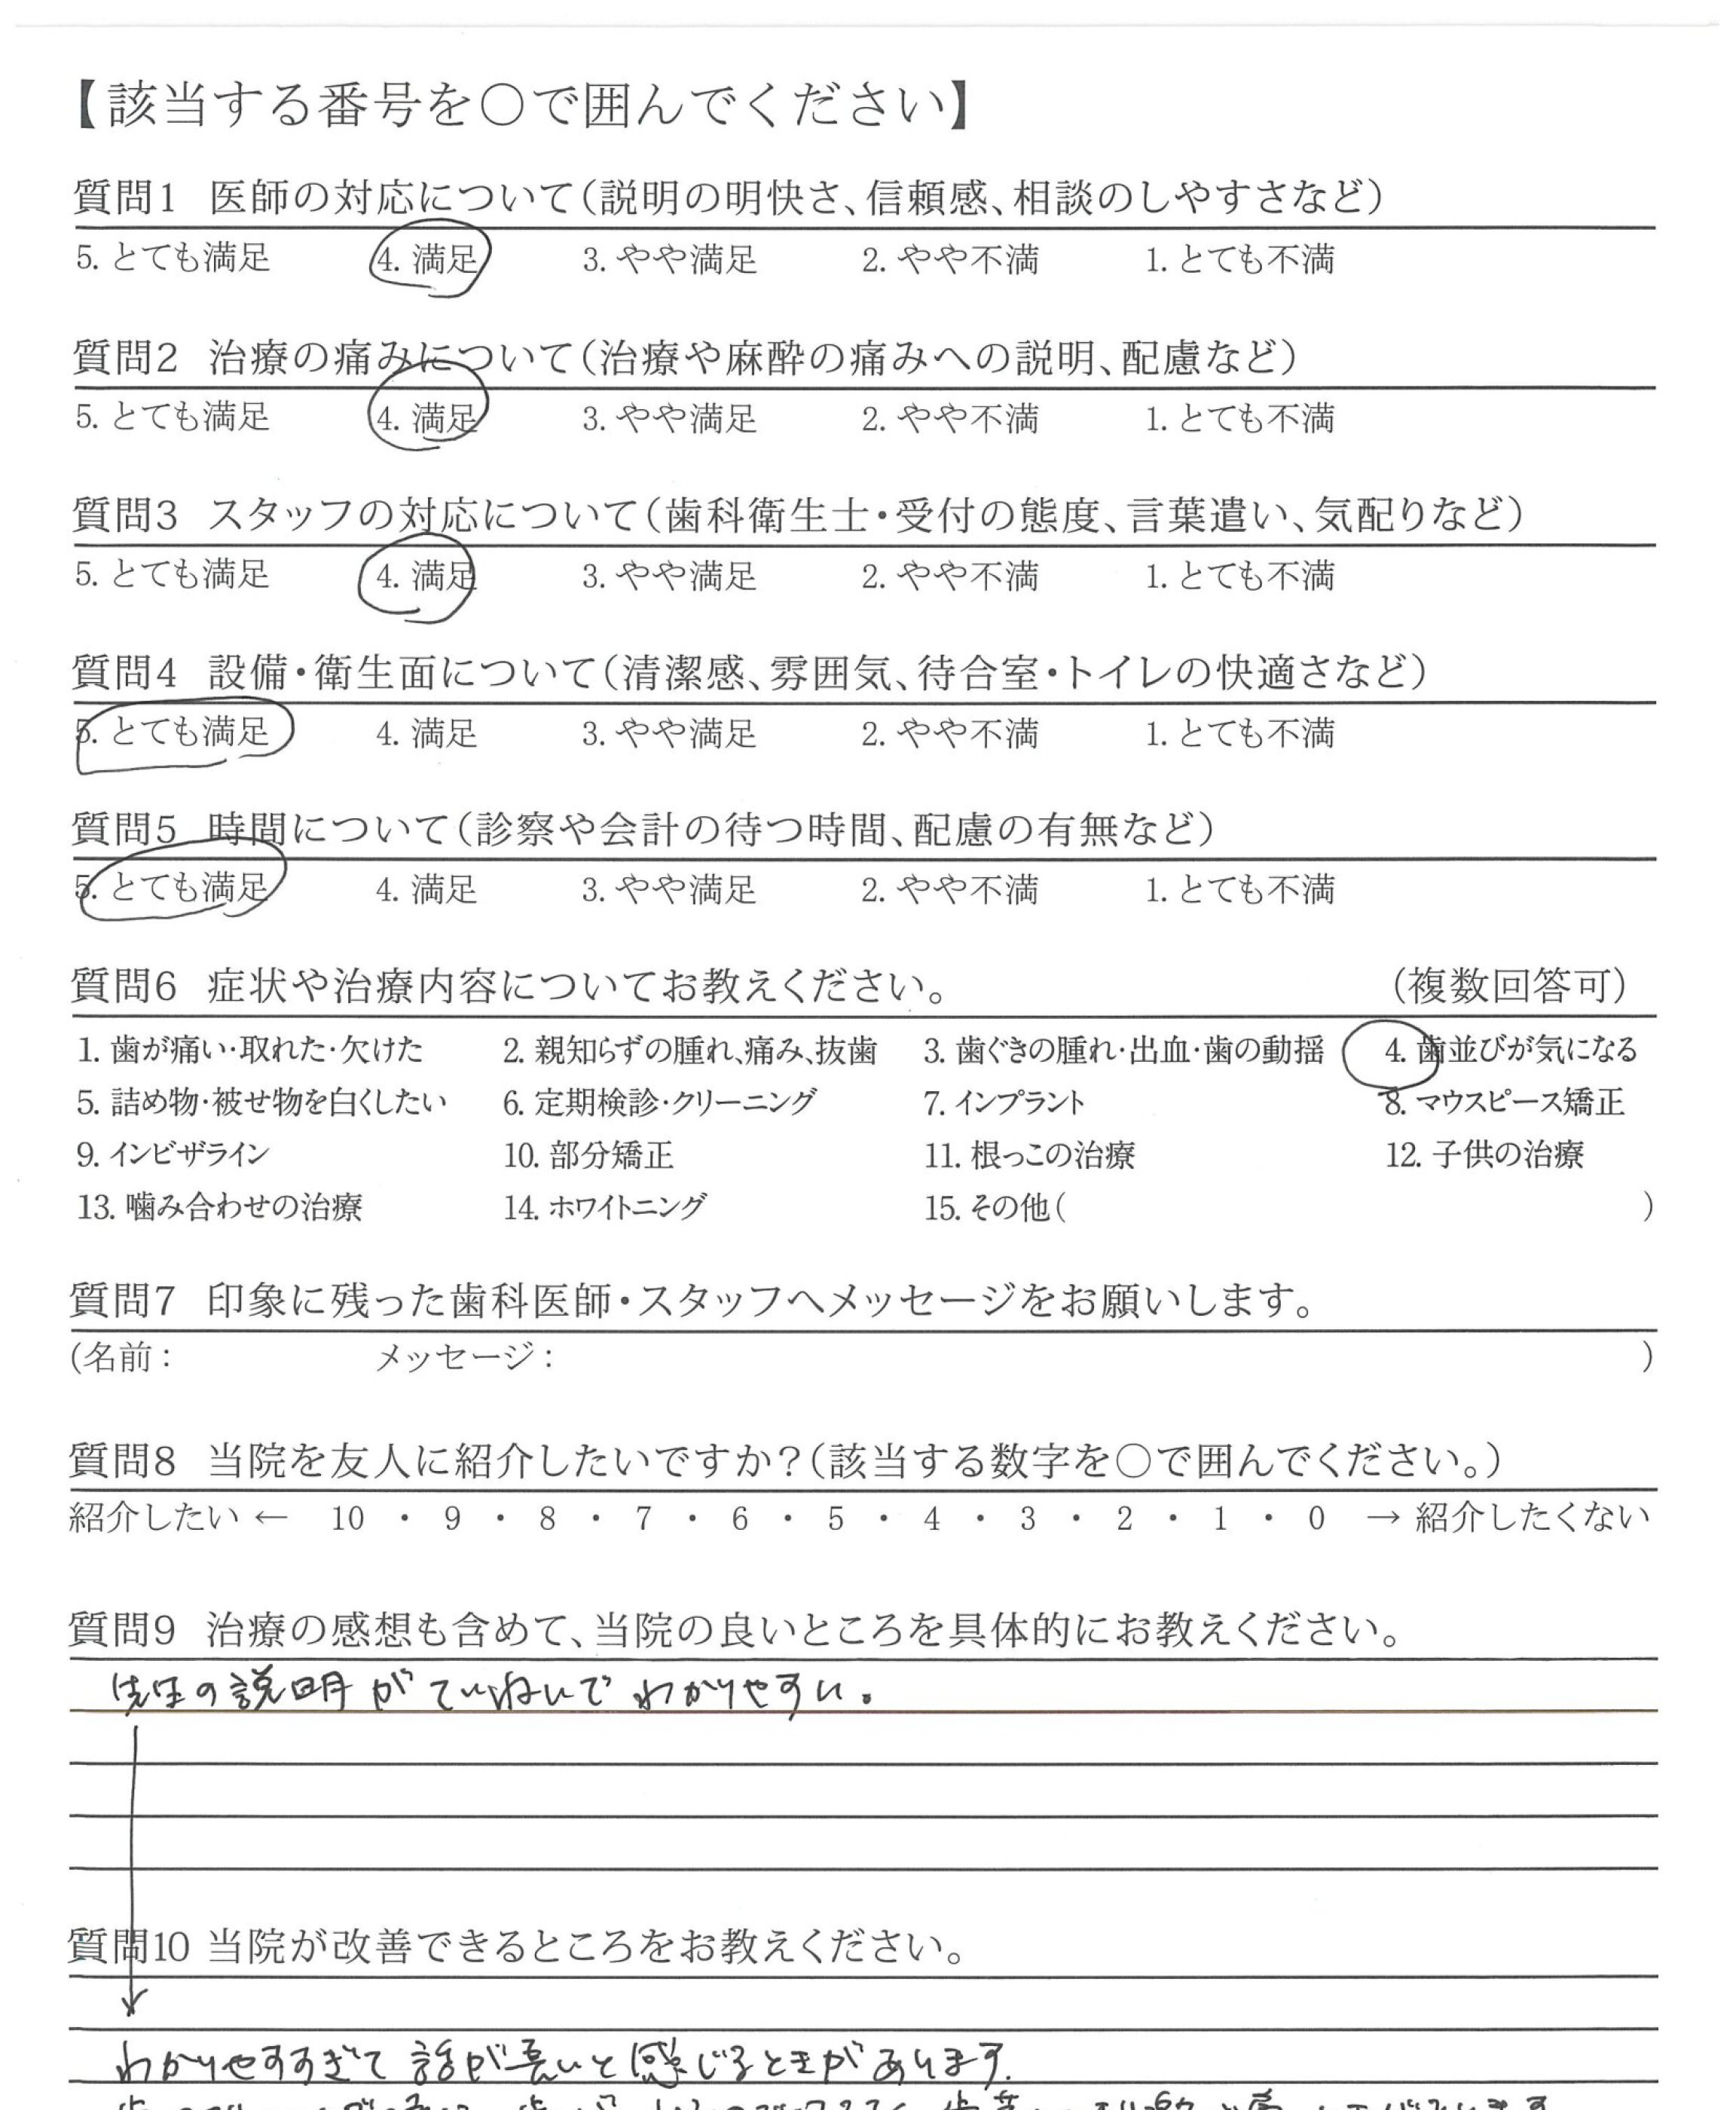 【該当する番号を〇で囲んでください】
質問1 医師の対応について(説明の明快さ、信頼感、相談のしやすさなど)
5. とても満足 4. 満足 3. やや満足 2. やや不満 1. とても不満
質問2 治療の痛みについて(治療や麻酔の痛みへの説明、配慮など)
5. とても満足 4. 満足 3. やや満足 2. やや不満 1. とても不満
質問3 スタッフの対応について(歯科衛生士・受付の態度、言葉遣い、気配りなど)
5. とても満足 4. 満足 3. やや満足 2. やや不満 1. とても不満
質問4 設備・衛生面について(清潔感、雰囲気、待合室・トイレの快適さなど)
5. とても満足 4. 満足 3. やや満足 2. やや不満 1. とても不満
質問5 時間について(診察や会計の待つ時間、配慮の有無など)
5. とても満足 4. 満足 3. やや満足 2. やや不満 1. とても不満
質問6 症状や治療内容についてお教えください。 (複数回答可)
1. 歯が痛い・取れた・欠けた 2. 親知らずの腫れ、痛み、抜歯 3. 歯ぐきの腫れ・出血・歯の動揺 4. 歯並びが気になる
5. 詰め物・被せ物を白くしたい 6. 定期検診・クリーニング 7. インプラント 8. マウスピース矯正
9. インビザライン 10. 部分矯正 11. 根っこの治療 12. 子供の治療
13. 噛み合わせの治療 14. ホワイトニング 15. その他( )
質問7 印象に残った歯科医師・スタッフへメッセージをお願いします。
(名前: メッセージ: )
質問8 当院を友人に紹介したいですか?(該当する数字を〇で囲んでください。)
紹介したい ← 10 ・ 9 ・ 8 ・ 7 ・ 6 ・ 5 ・ 4 ・ 3 ・ 2 ・ 1 ・ 0 → 紹介したくない
質問9 治療の感想も含めて、当院の良いところを具体的にお教えください。
先生の説明がていねいでわかりやすい。
質問10 当院が改善できるところをお教えください。
わかりやすすぎて話が長いと感じるときがあります。